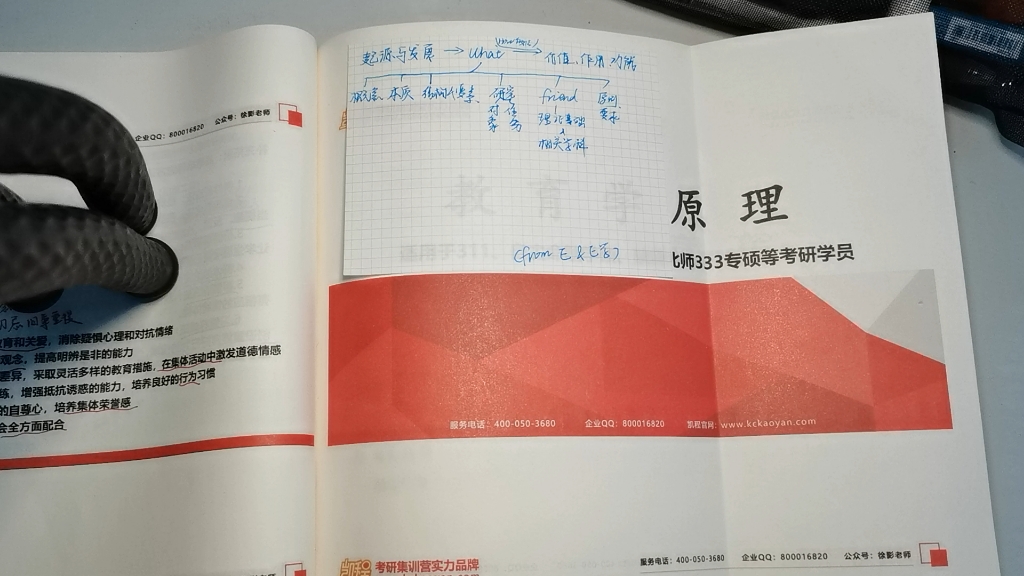 企业QQ：800016820 公众号：徐影老师
育和关爱，消除疑惧心理和对抗情绪
观念，提高明辨是非的能力
差异，采取灵活多样的教育措施，在集体活动中激发道德情感
练，增强抵抗诱惑的能力，培养良好的行为习惯
的自尊心，培养集体荣誉感
会全方面配合
起源与发展 → what → 价值、作用、功能
概念、本质、结构人要素、研究 friend 原则
对 任 强化基础 要求
象 务 相关学科
教育学原理
(from E & E学)
北师333专硕等考研学员
服务电话：400-050-3680 企业QQ：800016820 凯程官网：www.kckaoyan.com
凯程 考研集训营实力品牌
服务电话：400-050-3680 企业QQ：800016820 公众号：徐影老师